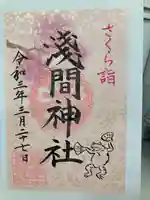 さくら詣
淺間神社
令和三年三月二十七日